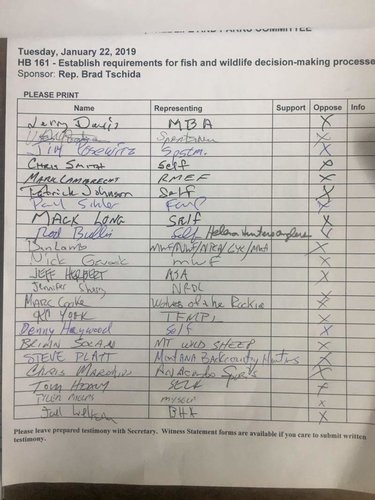 PARKS COMMITTEE
Tuesday, January 22, 2019
HB 161 - Establish requirements for fish and wildlife decision-making processe
Sponsor: Rep. Brad Tschida
PLEASE PRINT
Name Representing Support Oppose Info
Jerry Davis MBA X
X
JIM POSEWITZ X
CHRIS SMITH Self X
MARK LAMBRECHT RMEF X
Patrick Johnson Self X
Paul Sihler FWP X
MACK LONG Self X
Rod Bullis Self Helena Hunters Anglers X
Ben Lamb X
Nick MWF X
JEFF HERBERT ASA X
Jennifer NRDC X
MARC Cooke Wolves of the Rockies X
YORK X
Denny Haywood Self X
BRIAN SOLAN MT WILD SHEEP X
STEVE PLATT Montana Backcountry Hunters X
CHRIS MARCHION Anaconda Sports X
TOM SELF X
TYLER MYSELF X
Joel BHA X
Please leave prepared testimony with Secretary. Witness Statement forms are available if you care to submit written
testimony.